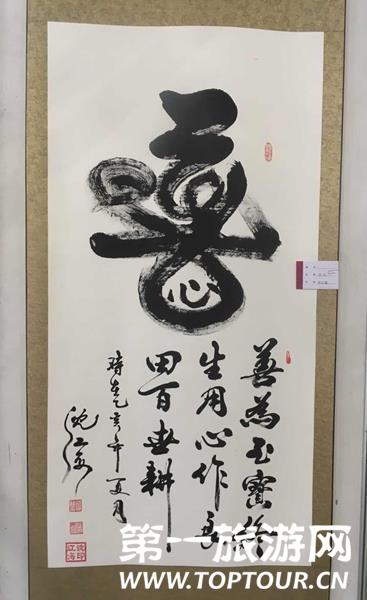 善
心
善為至寶終
生用心作良
田百世耕
時在己亥年夏月
沈江海
第一旅游网
WWW.TOPTOUR.CN